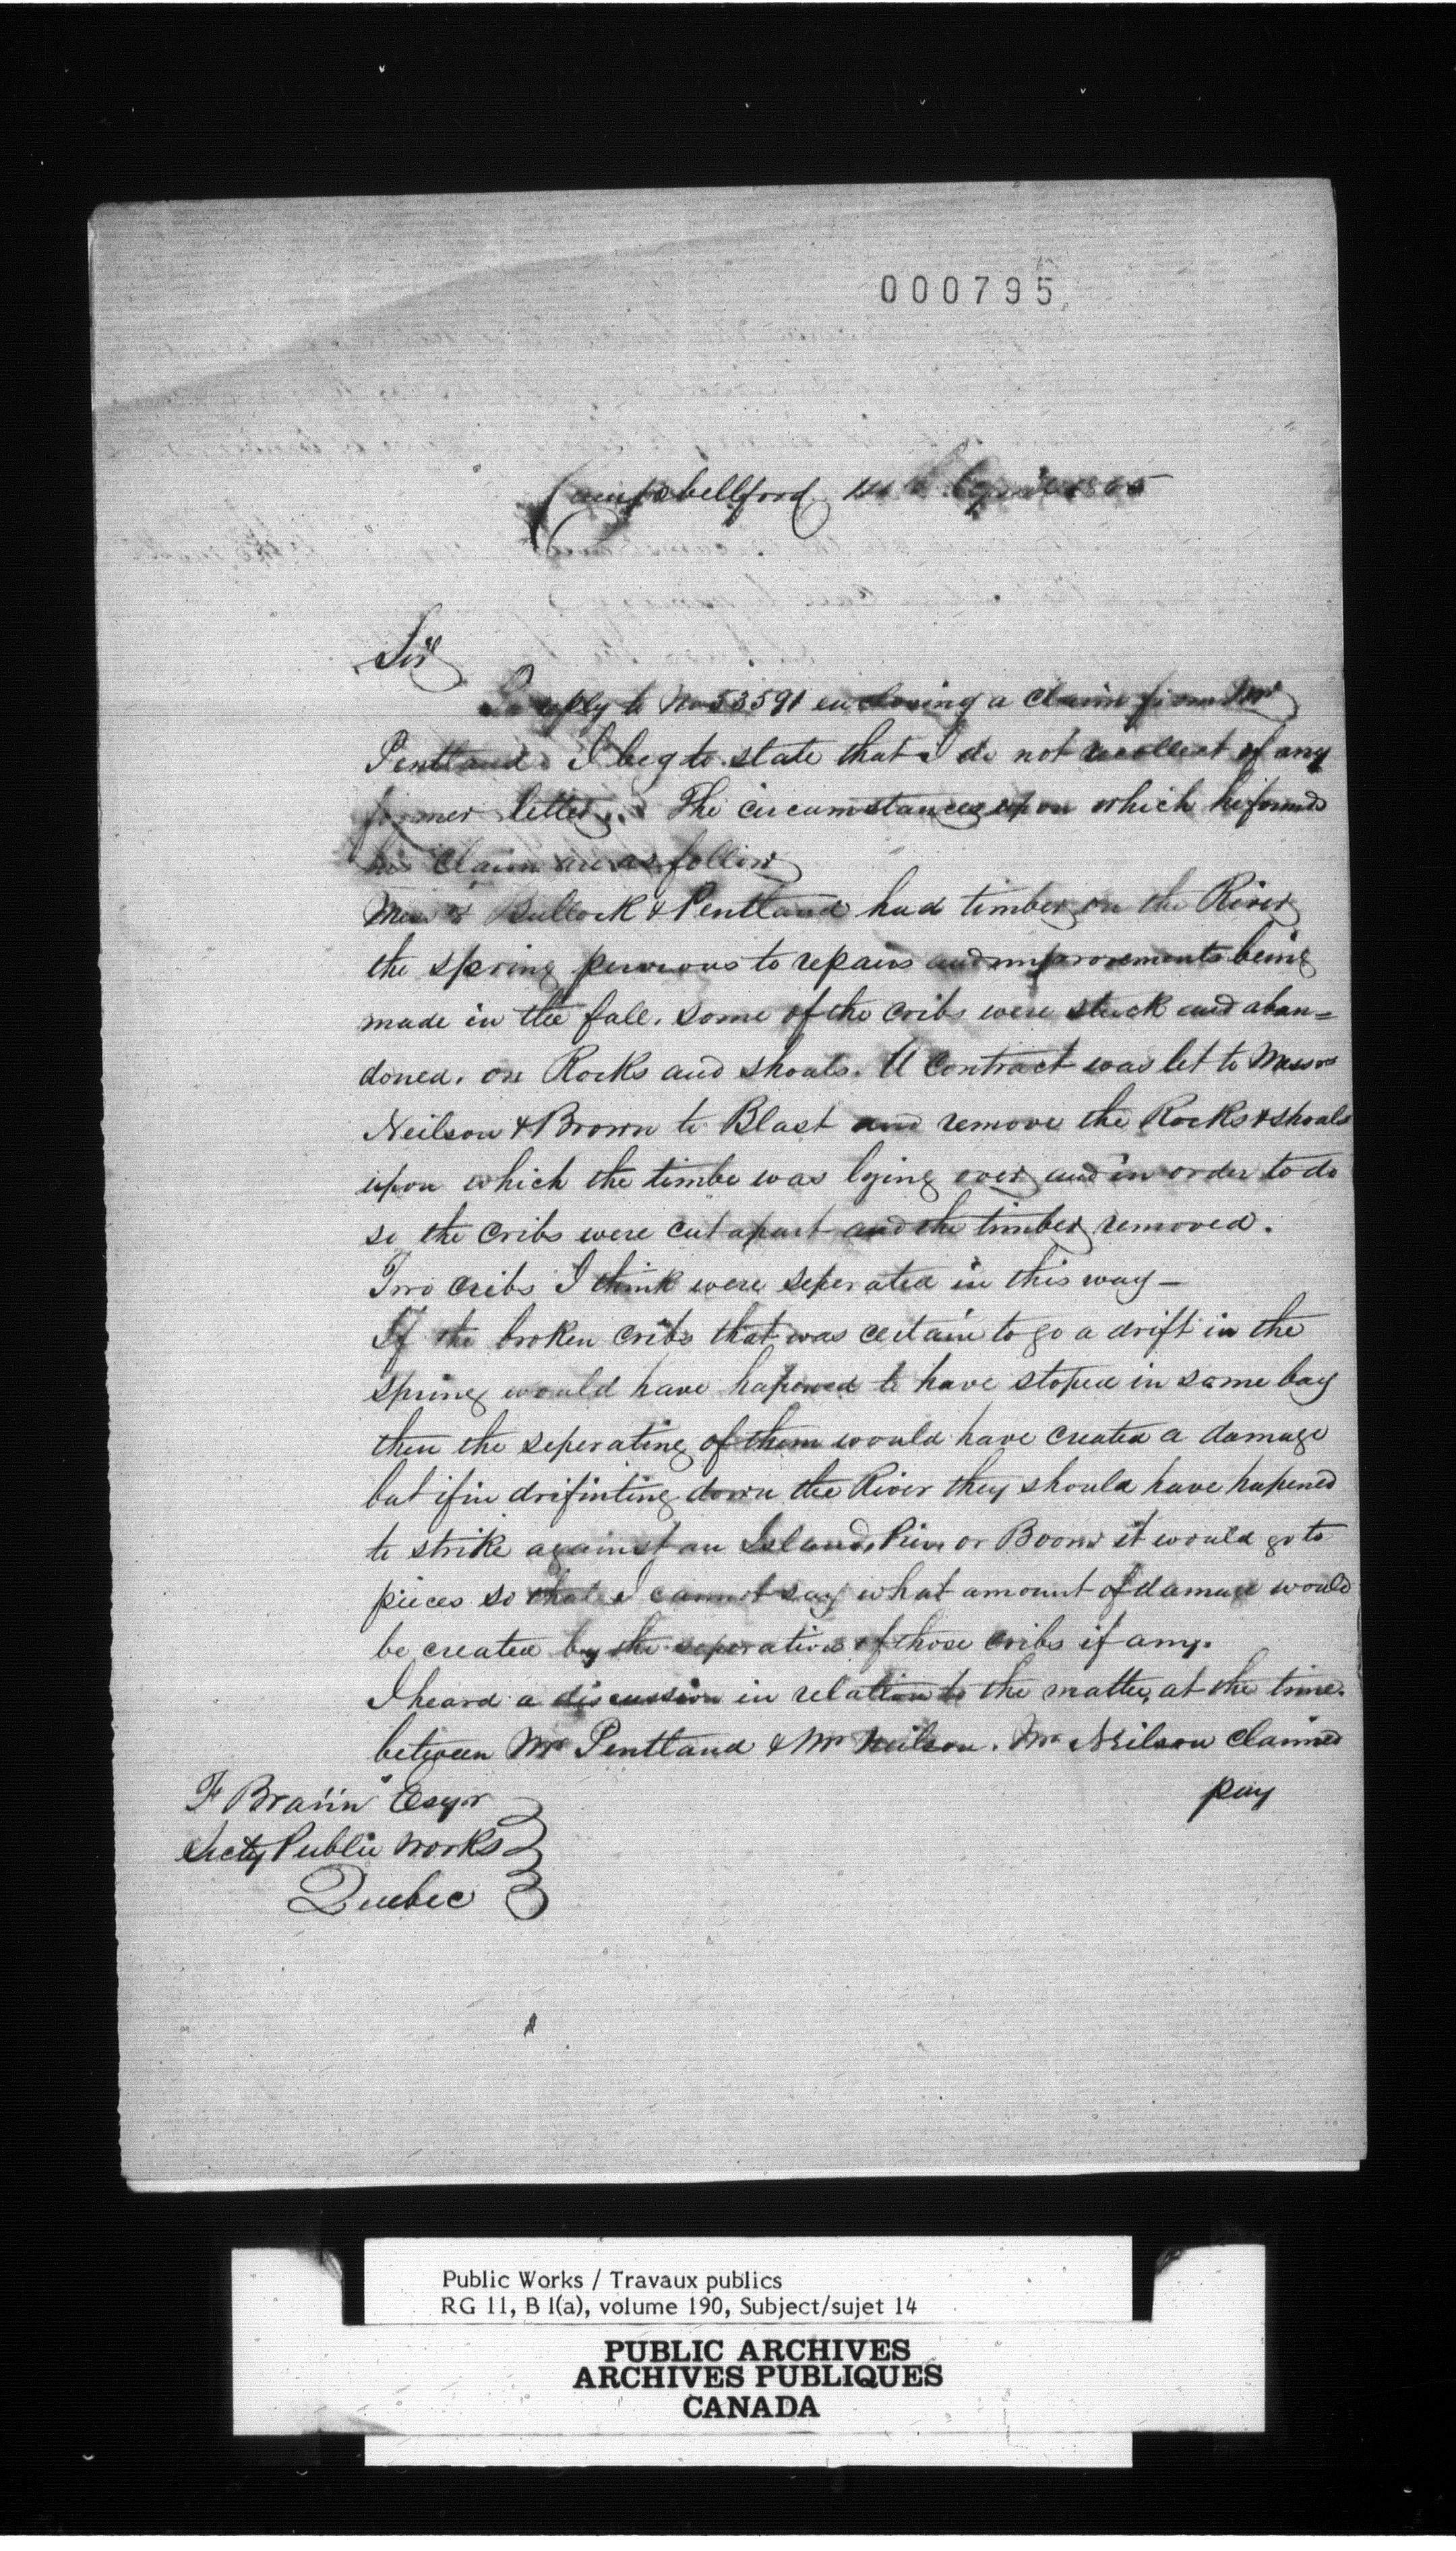 000795
Campbellford April 1865
Sir
In reply to No 53591 enclosing a claim from Mr
Pentland. I beg to state that I do not recollect of any
former letter. The circumstances upon which he founds
his claim are as follow
Messrs Bullock & Pentland had timber on the River
the spring pervious to repairs and improvements being
made in the fall. some of the cribs were stuck and aban=
doned. on Rocks and shoals. A Contract was let to Messrs
Neilson & Brown to Blast and remove the Rocks & shoals
upon which the timbe was lying over and in order to do
so the cribs were cut apart and the timber removed.
Two cribs I think were seperated in this way—
If the broken cribs that was certain to go a drift in the
spring would have hapened to have stoped in some bay
then the seperating of them would have created a damage
but if in drifinting down the River they should have hapened
to strike against an Island, Pier or Boom it would go to
pieces so that I cannot say what amount of damage would
be created by the seperation of those cribs if any.
I heard a discussion in relation to the matter, at the time.
between Mr Pentland & Mr Neilson. Mr Neilson claimed
pay
F Braün Esqr
Secty Public Works
Quebec
Public Works / Travaux publics
RG 11, B 1(a), volume 190, Subject/sujet 14
PUBLIC ARCHIVES
ARCHIVES PUBLIQUES
CANADA